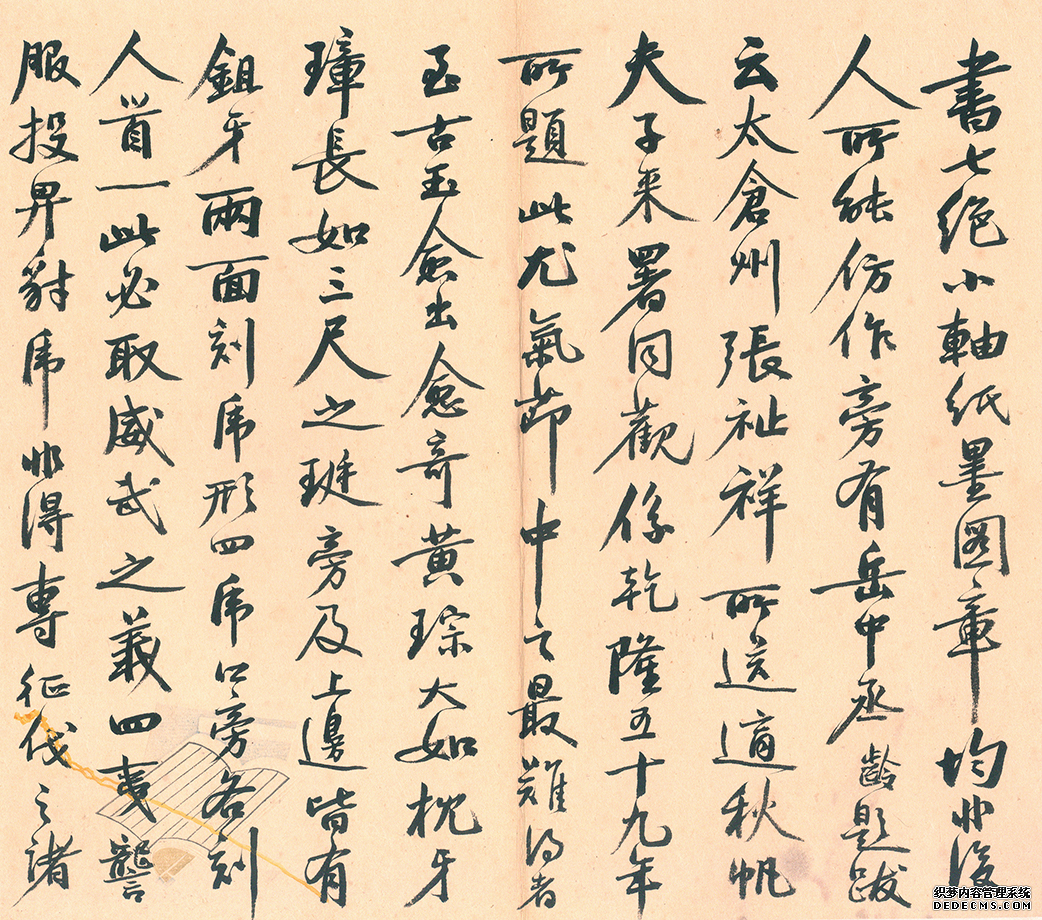 書七绝小軸紙墨圖章均非後
人所能仿作旁有岳中丞齡題跋
云太倉州張祉祥所送適秋帆
夫子来署同觀係乾隆五十九年
所題此尤氣節中之最難得者
至古玉愈出愈奇黄琮大如枕牙
璋長如三尺之珽旁及上邊皆有
鉏牙兩面刻虎形四虎口旁各刻
人首一此必取威武之義四夷讋
服投畀豺虎非得專征伐之諸
织梦内容管理系统
DEDECMS.COM